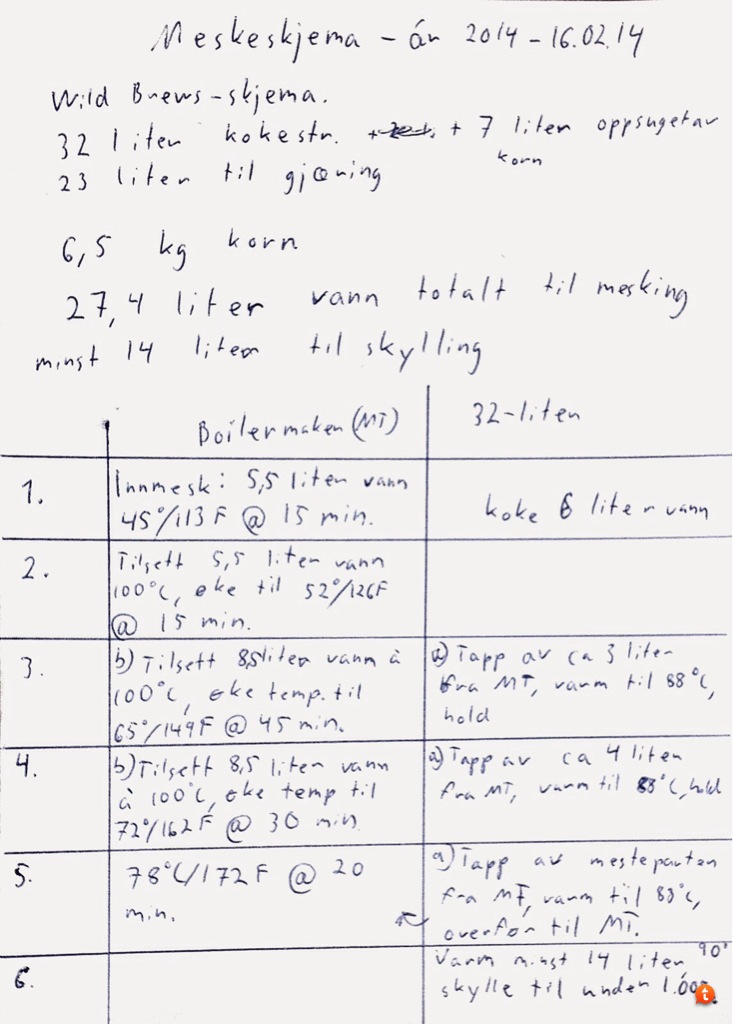 Meskeskjema - år 2014 - 16.02.14
Wild Brews-skjema.
32 liter kokestr. + 7 liter oppsuget av
korn
23 liter til gjæring
6,5 kg korn
27,4 liter vann totalt til mesking
minst 14 liter til skylling
Boilermaker (MT)
32-liter
1.
Innmesk: 5,5 liter vann
45°/113 F @ 15 min.
koke 6 liter vann
2.
Tilsett 5,5 liter vann
100°C, øke til 52°/126F
@ 15 min.
3.
b) Tilsett 8,5 liter vann à
100°C, øke temp. til
65°/149F @ 45 min.
a) Tapp av ca 3 liter
fra MT, varm til 88°C,
hold
4.
b) Tilsett 8,5 liter vann
à 100°C, øke temp til
72°/162F @ 30 min
a) Tapp av ca 4 liter
fra MT, varm til 88°C, hold
5.
78°C/172 F @ 20
min.
a) Tapp av mesteparten
fra MT, varm til 88°C,
overfør til MT.
6.
Varm minst 14 liter 90°
skylle til under
t